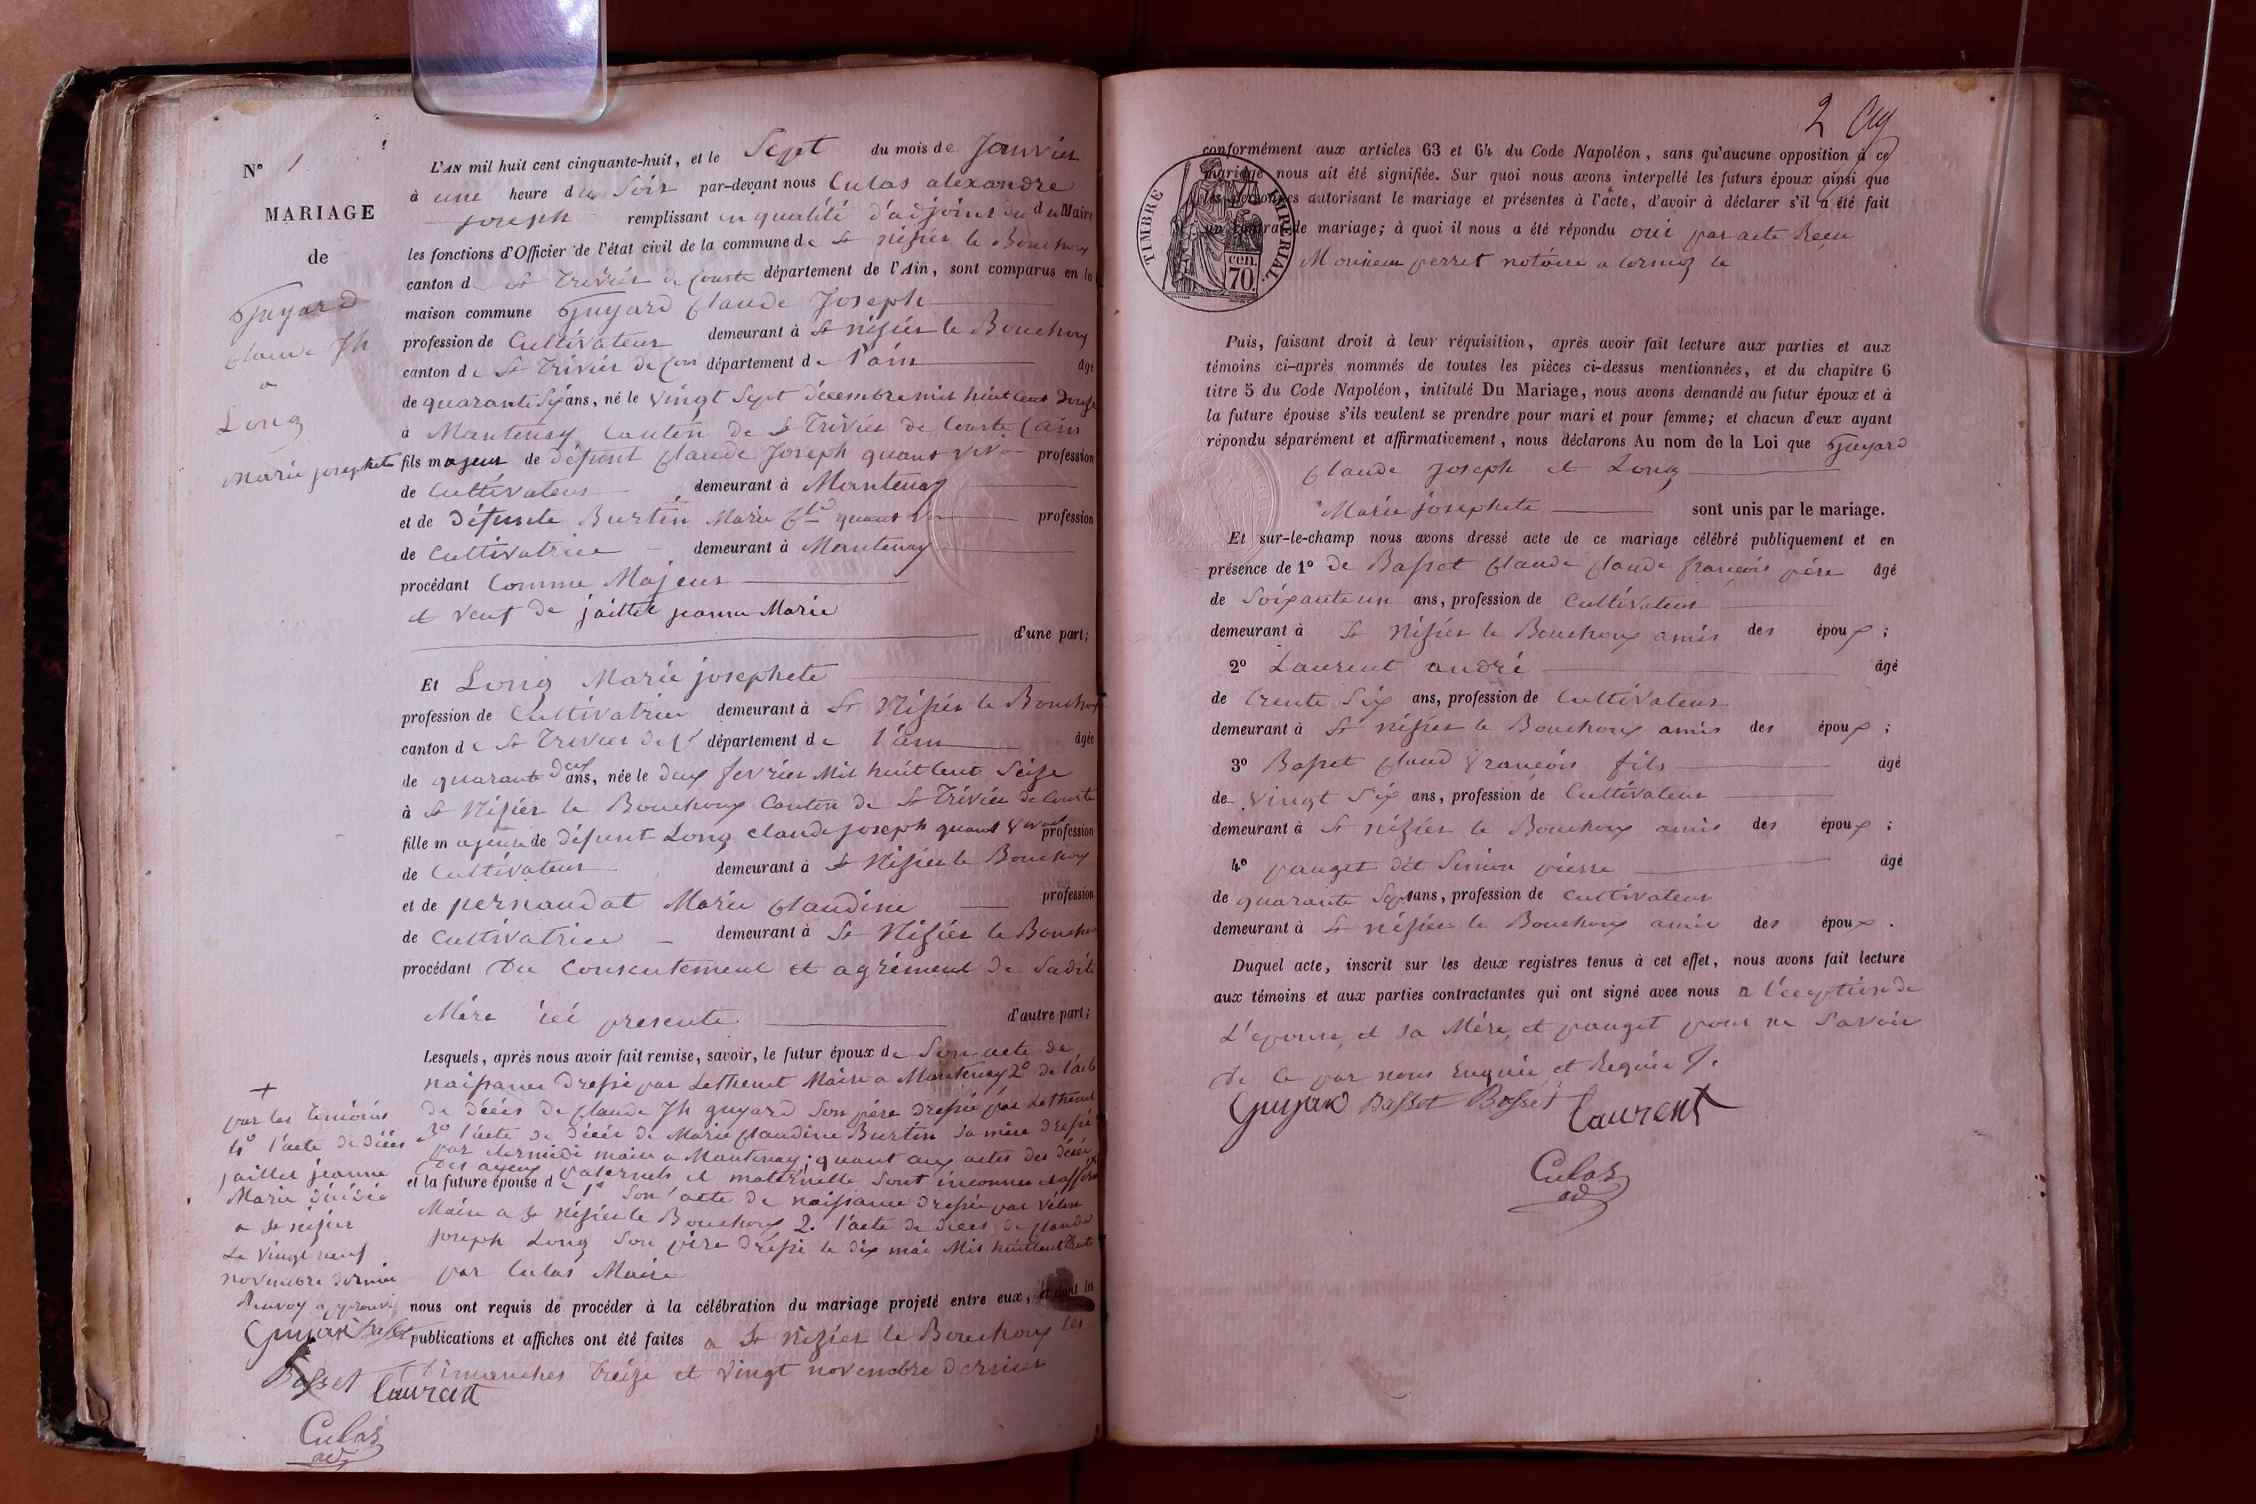 N° 1
MARIAGE
de
Guyard
Claude Jh
a
Long
Marie josephete
L'AN mil huit cent cinquante-huit, et le Sept du mois de Janvier
à une heure du Soir par-devant nous Culas alexandre
joseph remplissant en qualité d'adjoint du Maire
les fonctions d'Officier de l'état civil de la commune de St nizier le Bouchoux
canton de St Trivier de Courte département de l'Ain, sont comparus en la
maison commune Guyard Claude Joseph
profession de Cultivateur demeurant à St nizier le Bouchoux
canton de St Trivier de Cour département de l'ain âgé
de quarante six ans, né le vingt Sept décembre mil huit cent Douze
à Mantenay Canton de St Trivier de Courte (ain
fils majeur de défunt Claude Joseph quant viv profession
de Cultivateur demeurant à Mantenay
et de Défunte Burtin Marie Cld quant v profession
de Cultivatrice demeurant à Mantenay
procédant Comme Majeur
et veuf de jaillet jeanne Marie
d'une part;
Et Long Marie josephete
profession de Cultivatrice demeurant à St Nizier le Bouchoux
canton de St Trivier de Ct département de l'ain âgée
de quarante deux ans, née le deux fevrier Mil huit Cent Seize
à St Nizier le Bouchoux Canton de St Trivier de Courte
fille majeure de défunt Long Claude joseph quant vivait profession
de Cultivateur demeurant à St Nizier le Bouchoux
et de pernaudat Marie Claudine profession
de Cultivatrice demeurant à St Nizier le Bouchoux
procédant Du Consentement et agrément de Sadite
Mére ici presente d'autre part;
Lesquels, après nous avoir fait remise, savoir, le futur époux de Son acte de
naissance Dressé par Lethenet Maire a Mantenay 2° de l'acte
de décés de Claude Jh guyard Son pére dressé par Lethenet
3° l'acte de décés de Marie Claudine Burtin sa mére dressé
par Mermide maire a Mantenay; quant aux actes des décés
des ayeux paternels et maternelle Sont inconnus
et la future épouse de 1° Son acte de naissance dressé par
Maire a St Nizier le Bouchoux 2. l'acte de décés de Claude
joseph Long Son pére dressé le dix mai Mil huit Cent
par Culas Maire
nous ont requis de procéder à la célébration du mariage projeté entre eux, et dont les
publications et affiches ont été faites a St Nizier le Bouchoux les
Dimanches treize et vingt novembre dernier
+
par les temoins
4° l'acte de décés
jaillet jeanne
Marie décédée
a St nizier
Le vingt neuf
novembre dernier
Renvoy approuvé
Guyard Basset
Basset Laurent
Culas
ad
2
conformément aux articles 63 et 64 du Code Napoléon, sans qu'aucune opposition à ce
mariage nous ait été signifiée. Sur quoi nous avons interpellé les futurs époux ainsi que
les personnes autorisant le mariage et présentes à l'acte, d'avoir à déclarer s'il a été fait
un contrat de mariage; à quoi il nous a été répondu oui par acte Reçu
Monsieur perret notaire a Cormoz le
TIMBRE IMPERIAL.
70 cen.
Puis, faisant droit à leur réquisition, après avoir fait lecture aux parties et aux
témoins ci-après nommés de toutes les pièces ci-dessus mentionnées, et du chapitre 6
titre 5 du Code Napoléon, intitulé Du Mariage, nous avons demandé au futur époux et à
la future épouse s'ils veulent se prendre pour mari et pour femme; et chacun d'eux ayant
répondu séparément et affirmativement, nous déclarons Au nom de la Loi que Guyard
Claude joseph et Long
Marie josephete sont unis par le mariage.
Et sur-le-champ nous avons dressé acte de ce mariage célébré publiquement et en
présence de 1° de Basset Claude Claude françois pére âgé
de Soixante un ans, profession de Cultivateur
demeurant à St Nizier le Bouchoux amis des époux;
2° Laurent andré âgé
de trente Six ans, profession de Cultivateur
demeurant à St nizier le Bouchoux amis des époux;
3° Basset Claud francois fils âgé
de vingt Six ans, profession de Cultivateur
demeurant à St nizier le Bouchoux amis des époux;
4° pauget dit Simion piérre âgé
de quarante Sept ans, profession de Cultivateur
demeurant à St nizier le Bouchoux amis des époux.
Duquel acte, inscrit sur les deux registres tenus à cet effet, nous avons fait lecture
aux témoins et aux parties contractantes qui ont signé avec nous a l'éxeption de
L'epouse et sa Mére, et pauget pour ne Savoir
De ce par nous Enquis et Requis
Guyard Basset Basset Laurent
Culas
ad